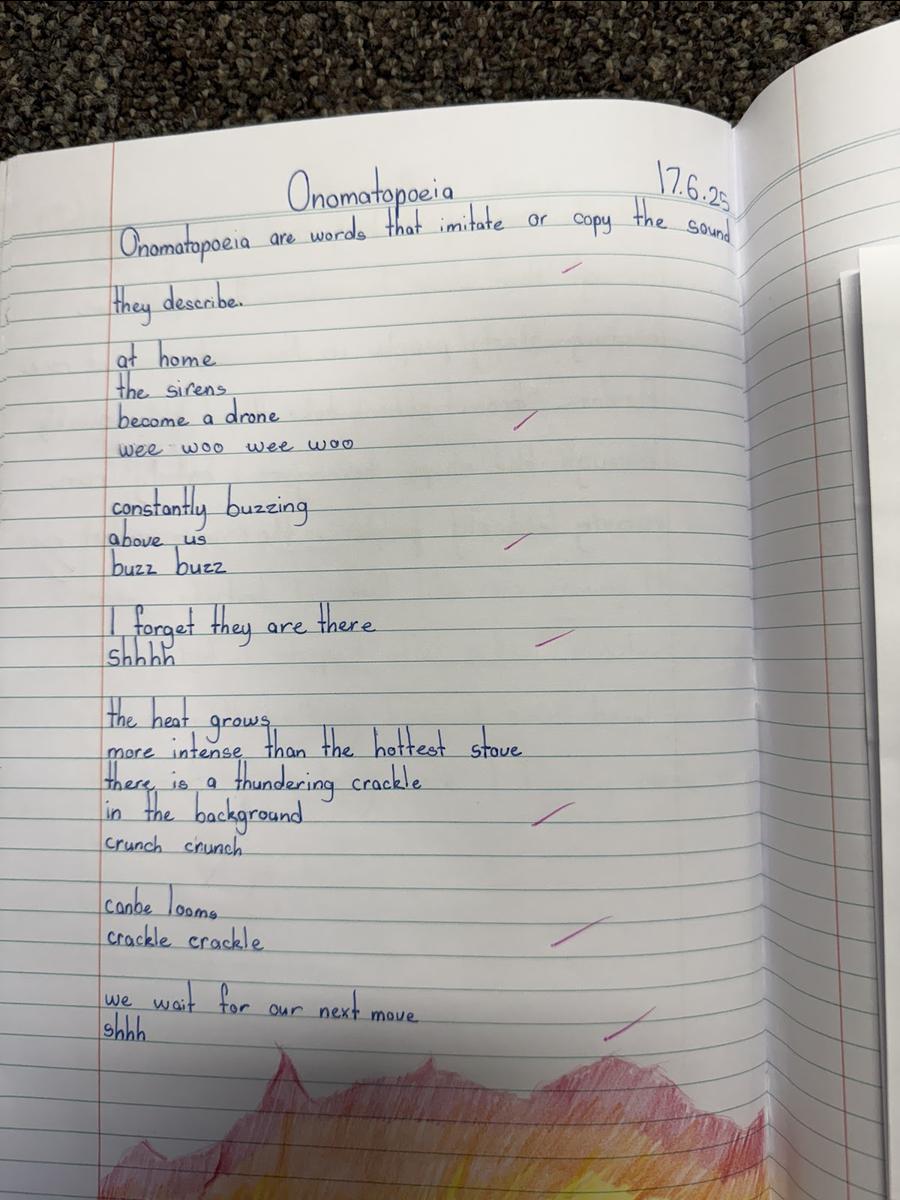 Onomatopoeia
17.6.25
Onomatopoeia are words that imitate or copy the sound
they describe.
at home
the sirens
become a drone
wee woo wee woo
constantly buzzing
above us
buzz buzz
I forget they are there
shhhh
the heat grows
more intense than the hottest stove
there is a thundering crackle
in the background
crunch crunch
canbe looms
crackle crackle
we wait for our next move
shhh